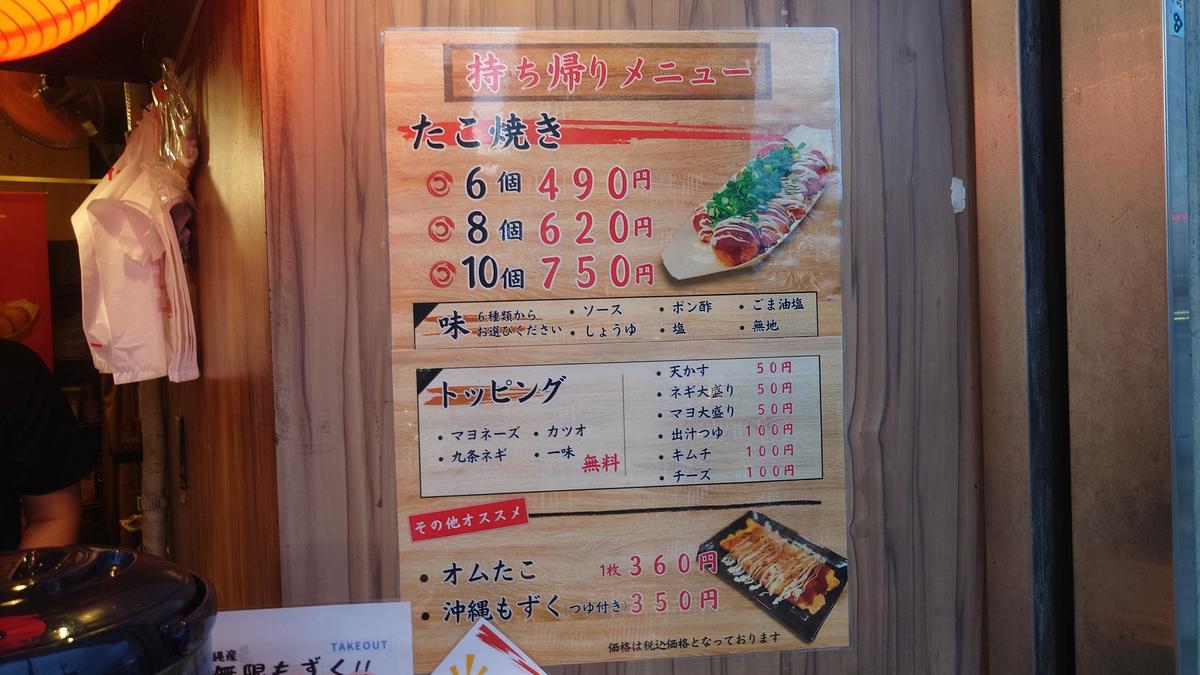 持ち帰りメニュー
たこ焼き
6個 490円
8個 620円
10個 750円
味 6種類からお選びください
・ソース ・ポン酢 ・ごま油塩
・しょうゆ ・塩 ・無地
トッピング
・マヨネーズ ・カツオ
・九条ネギ ・一味 無料
・天かす 50円
・ネギ大盛り 50円
・マヨ大盛り 50円
・出汁つゆ 100円
・キムチ 100円
・チーズ 100円
その他オススメ
・オムたこ 1枚 360円
・沖縄もずく(つゆ付き) 350円
価格は税込価格となっております
TAKEOUT
縄産
無限もずく!!
8